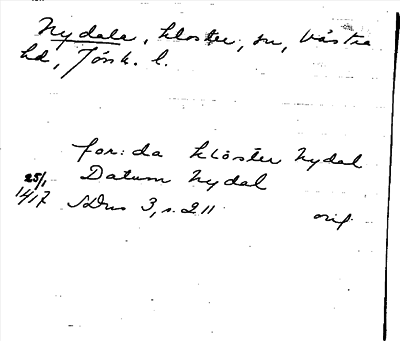 Nydala, kloster, sn, Västra
hd, Jönk. l.
for: da kloster Nydal
25/1 Datum Nydal
1417 SDns 3, s. 211 orig.